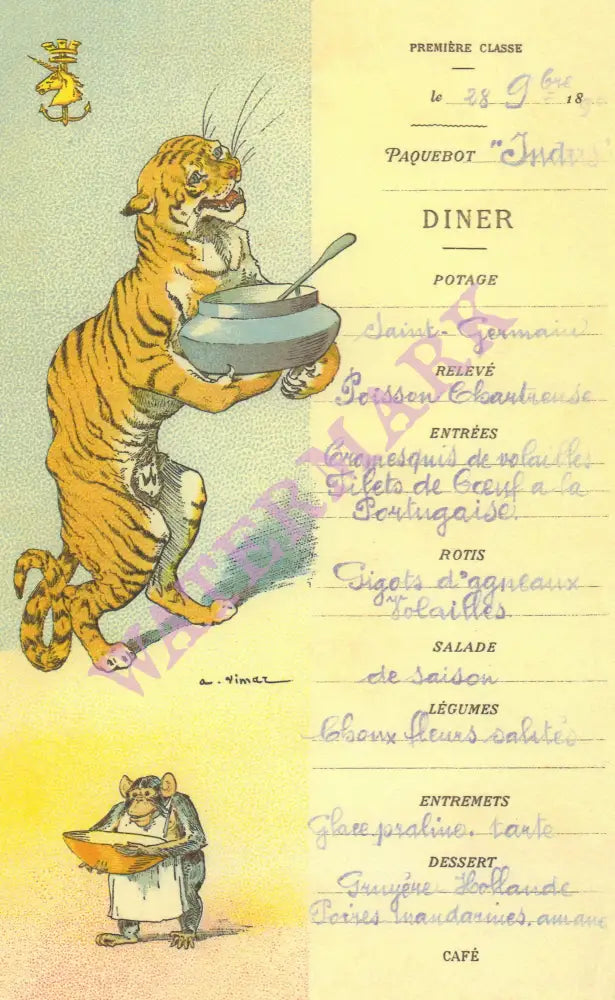 PREMIÈRE CLASSE
le 28 9bre 18
PAQUEBOT "Indus"
DINER
POTAGE
Saint-Germain
RELEVÉ
Poisson Chartreuse
ENTRÉES
Cromesquis de volailles
Filets de Bœuf a la
Portugaise.
ROTIS
Gigots d'agneaux
Volailles
SALADE
de saison
LÉGUMES
Choux fleurs sautés
ENTREMETS
Glace praline. tarte
DESSERT
Gruyère Hollande
Poires mandarines. amand
CAFÉ
a. vimar
WATERMARK